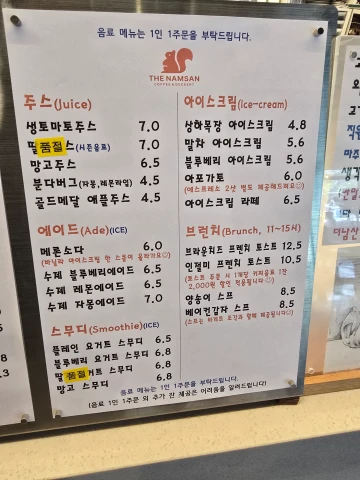 음료 메뉴는 1인 1주문을 부탁드립니다.
THE NAMSAN
COFFEE & DESSERT
주스(Juice)
생토마토주스 7.0
딸 품절 스(시즌음료) 7.0
망고주스 6.5
분다버그(자몽,레몬라임) 4.5
골드메달 애플주스 4.5
에이드(Ade)(ICE)
메론소다 6.0
(바닐라 아이스크림 한 스쿱이 올라가요☺)
수제 블루베리에이드 6.5
수제 레몬에이드 6.5
수제 자몽에이드 7.0
스무디(Smoothie)(ICE)
플레인 요거트 스무디 6.5
블루베리 요거트 스무디 6.8
딸 품절 거트 스무디 6.8
망고 스무디 6.8
아이스크림(Ice-cream)
상하목장 아이스크림 4.8
말차 아이스크림 5.6
블루베리 아이스크림 5.6
아포가토 6.0
(에스프레소 2샷 별도 제공해드려요☺)
아이스크림 라떼 6.5
브런치(Brunch, 11~15시)
브라운치즈 프렌치 토스트 12.5
인절미 프렌치 토스트 10.5
(토스트 주문 시 1개당 커피음료 1잔
2,000원 할인 적용됩니다☺)
양송이 스프 8.5
베이컨감자 스프 8.5
(스프는 바게트 조각과 함께 제공됩니다☺)
음료 메뉴는 1인 1주문을 부탁드립니다.
(음료 1인 1주문 외 추가 잔 제공은 어려움을 알려드립니다)